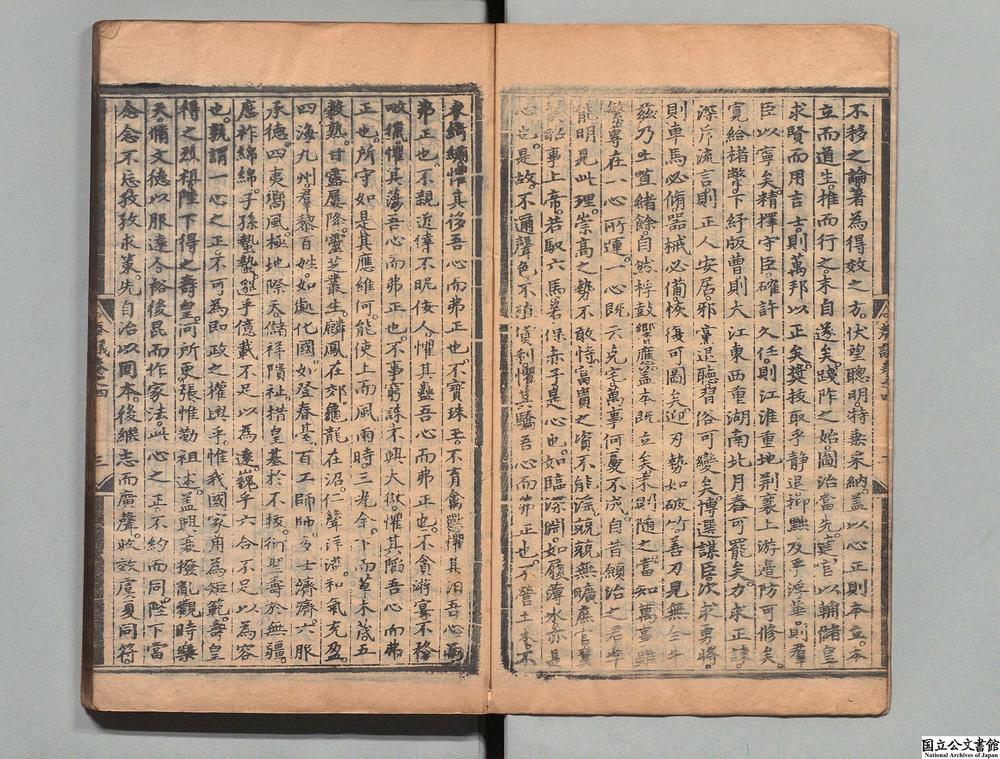 不移之論著為得效之方伏望聰明特垂采納蓋以心正則本立本
立而道生推而行之末自遂矣踐阼之始圖治當先建官以輔儲皇
求賢而用吉士則萬邦以正矣獎技取乎靜退抑黜及乎浮華則羣
臣以寧矣精擇守臣確許久任則江淮重地荆襄上游邊防可修矣
寬給楮幣下紓版曹則大江東西重湖南北月舂可罷矣力求正諫
深斥流言則正人安居邪黨退聽習俗可變矣博選謀臣次求勇將
則車馬必脩器械必備恢復可圖矣迎刃勢如破竹善刀見無全牛
茲乃土苴緒餘自然桴鼓響應蓋本既立矣末則隨之當知萬事雖
繁專在一心所運一心既正克定萬事何憂不成自昔願治之君率
能明見此理崇高之勢不敢恃富貴之資不能淫兢兢無曠庶官翼
翼昭事上帝若馭六馬若保赤子是心也如臨深淵如履薄冰亦是
心也是故不邇聲色不殖貨利懼其驕吾心而弗正也不營土木不
衣錦繡惟其侈吾心而弗正也不寶珠玉不育禽獸懼其汨吾心而
弗正也不親近倖不昵佞人懼其蠱吾心而弗正也不貪游宴不務
畋獵懼其蕩吾心而弗正也不事窮誅不興大獄懼其陷吾心而弗
正也所守如是其應維何能使上而風雨時三光全下而草木茂五
穀熟甘露屢降靈芝叢生麟鳳在郊龜龍在沼仁聲洋溢和氣充盈
四海九州羣黎百姓如處化國如登春臺百工師師多士濟濟六服
承德四夷嚮風極地際天儲祥隤社措皇基於不拔衍聖壽於無疆
應祚綿綿子孫蟄蟄邈乎億載不足以為遠巍乎六合不足以為容
也孰謂一心之正不可為即政之權輿乎惟我國家用為矩範壽皇
得之烈祖陛下得之壽皇何所更張惟勤祖述蓋興衰撥亂觀時樂
天脩文德以服遠人裕後昆而作家法此心之正不約而同陛下當
念念不忘孜孜求策先自治以固本後繼志而廣聲收效虞夏同符
奏議卷之四
三
国立公文書館
National Archives of Japan